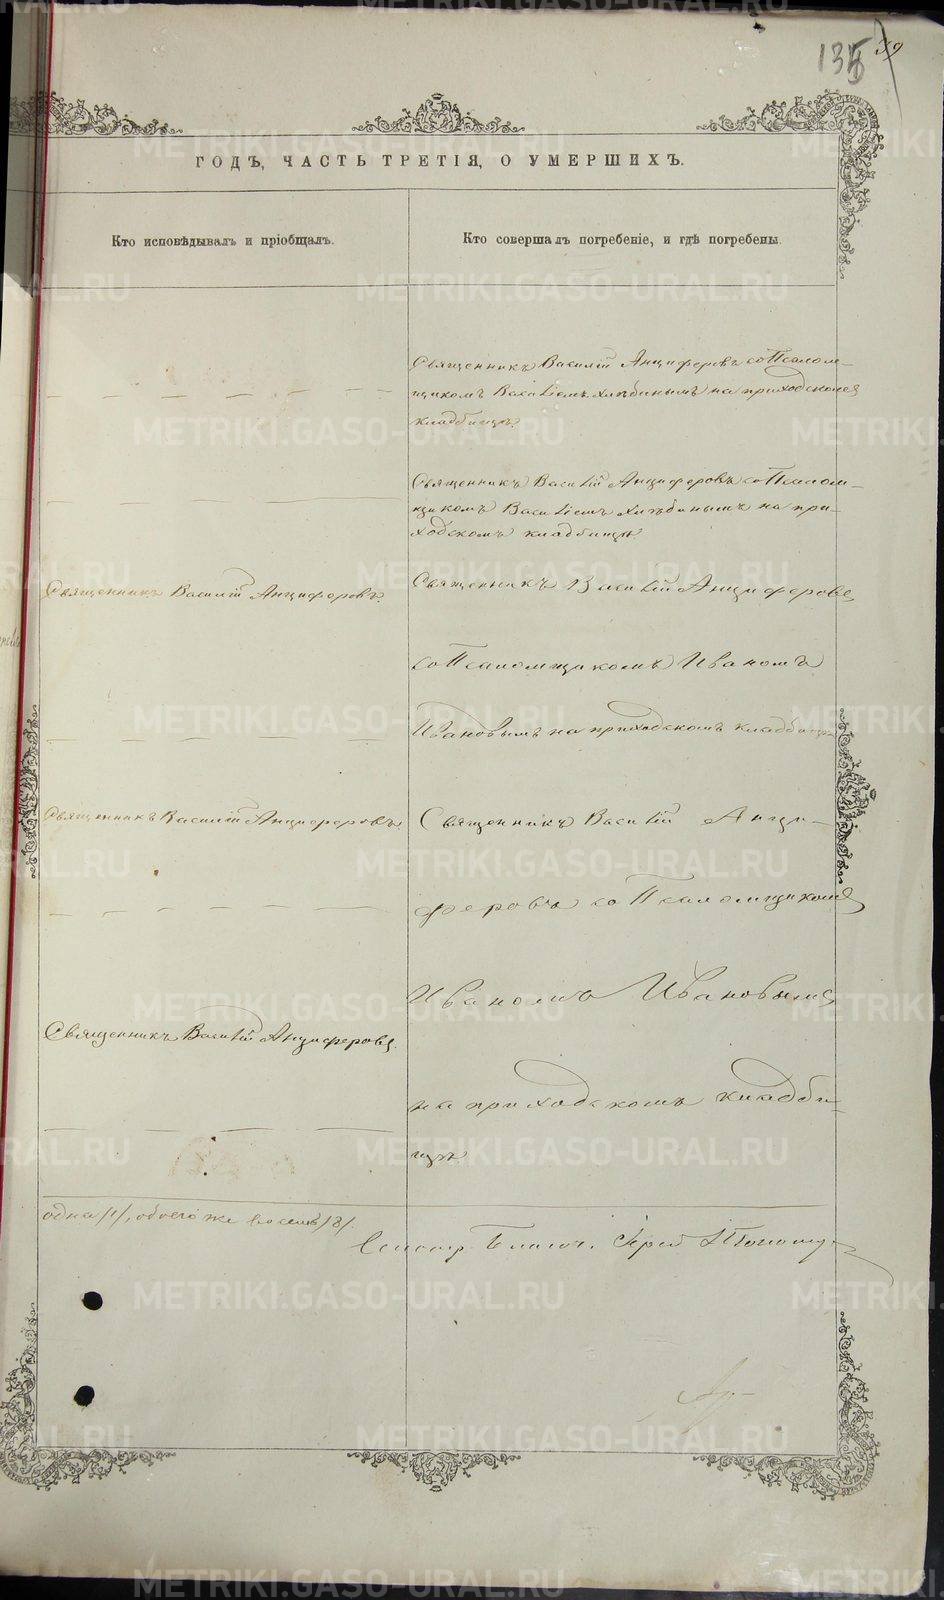 135
39
ГОДЪ, ЧАСТЬ ТРЕТІЯ, О УМЕРШИХЪ.
Кто исповѣдывалъ и пріобщалъ.
Кто совершалъ погребеніе, и гдѣ погребены.
Священникъ Василій Анциферовъ со Псалом-
щикомъ Василіемъ Хлѣбинымъ на приходскомъ
кладбищѣ.
Священникъ Василій Анциферовъ со Псалом-
щикомъ Василіемъ Хлѣбинымъ на при-
ходскомъ кладбищѣ
Священникъ Василій Анциферовъ.
Священникъ Василій Анциферовъ
со Псаломщикомъ Иваномъ
Ивановымъ на приходскомъ кладбищѣ
Священникъ Василій Анциферовъ
Священникъ Василій Анци-
феровъ со Псаломщикомъ
Иваномъ Ивановымъ
Священникъ Василій Анциферовъ.
на приходскомъ кладби-
щѣ
одна /1/, обоего же восемь /8/.
Благоч. Іерей
METRIKI.GASO-URAL.RU